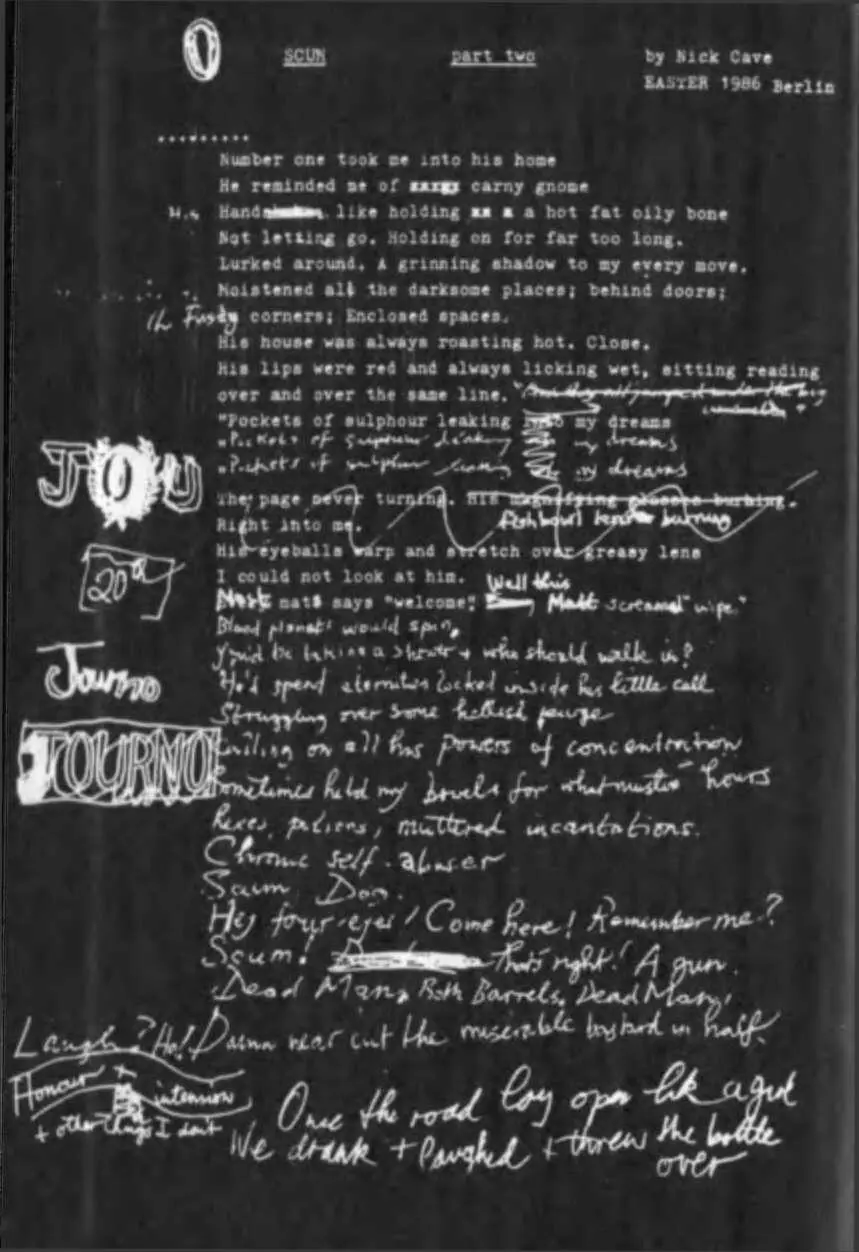 0
SCUM part two by Nick Cave
EASTER 1986 Berlin
.........
Number one took me into his home
He reminded me of carny gnome
His Hand like holding a hot fat oily bone
Not letting go. Holding on for far too long.
Lurked around. A grinning shadow to my every move.
Moistened all the darksome places; behind doors;
in Fusty corners; Enclosed spaces.
His house was always roasting hot. Close.
His lips were red and always licking wet, sitting reading
over and over the same line. "And they all jumped under the big
"Pockets of sulphour leaking into my dreams
"Pockets of sulphour leaking my dreams
"Pockets of sulphur leaking my dreams
JOU
The page never turning. His magnifying glasses burning.
Right into me. fishbowl burning
His eyeballs warp and stretch over greasy lens
20
I could not look at him. Well this
Most mats says "welcome". Matt screamed "wipe."
Blood planets would spin,
Journo
You'd be taking a shower + who should walk in?
He'd spend eternities locked inside his little cell
Struggling over some hellish
JOURNO
Calling on all his powers of concentration
Sometimes held my bowels for what must've hours
hexes, potions, muttered incantations.
Chronic self-abuser
Scum. Dog.
Hey four-eyes! Come here! Remember me?
Scum! That's right! A gun.
Dead Man, Both Barrels, Dead Man,
Laugh? Ha! Damn near cut the miserable bastard in half.
Honour + intension
+ other things I don't
Once the road lay open lik a girl
We drank + laughed + threw the bottle
over